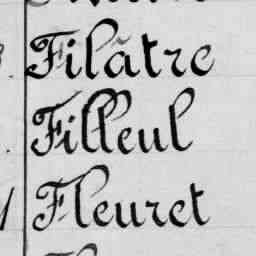 Filâtre
Filleul
Fleuret